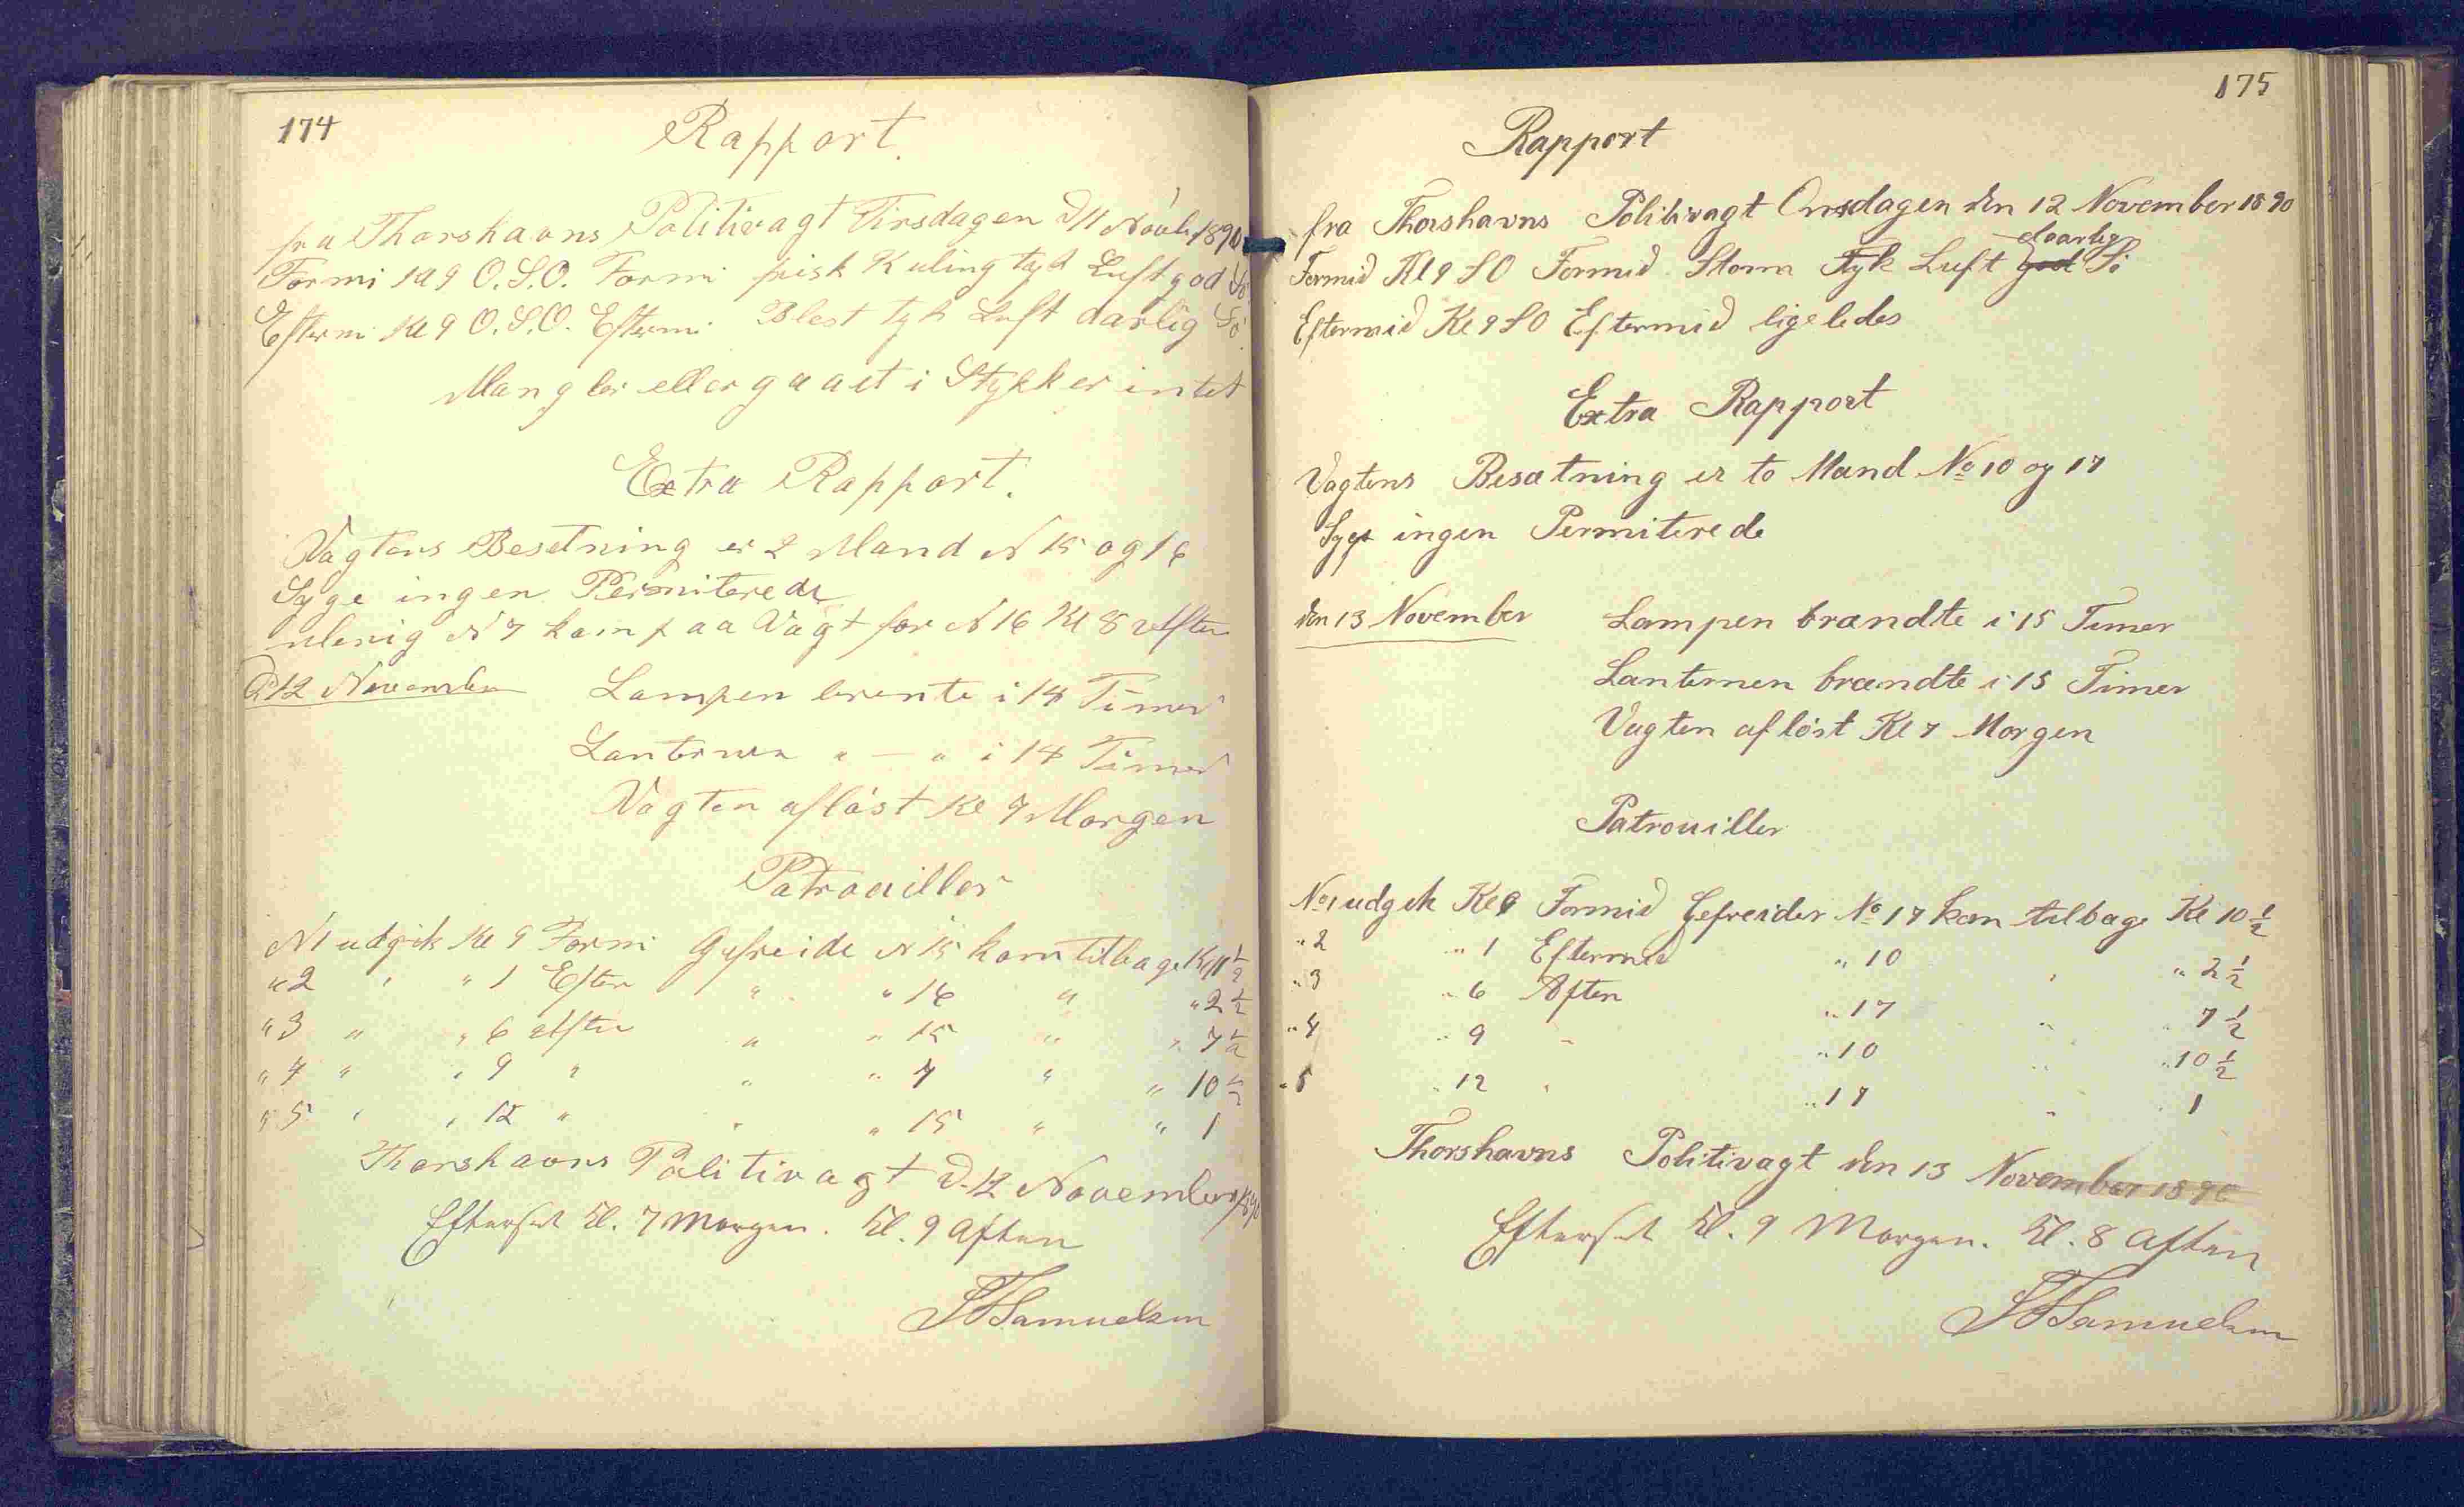 174
Rapport.
fra Thorshavns Politivagt Tirsdagen D 11 Novb. 1890
Formi Kl 9 O.S.O. Formi frisk Kuling tyk Luft god Sö
Efterm Kl 9 O.S.O. Efterm Blest tyk Luft darlig Sö
Mangler eller gaaet i Stykker intet
Extra Rapport.
Vagtens Besetning er 2 Mand N 15 og 16
Syge ingen Permiterede
Menig N 7 kom paa Vagt for N 16 Kl 8 Aften
D 12 November Lampen brente i 14 Timer
Lanternen " — " i 14 Timer
Vagten aflöst Kl 7 Morgen
Patrouiller
N 1 udgik Kl 9 Formi Gefreide N 15 kom tilbage Kl 11 1/2
" 2 " " 1 Efter " " 16 " " 2 1/2
" 3 " " 6 Aften " " 15 " " 7 1/2
" 4 " " 9 " " " 7 " " 10 1/2
" 5 " " 12 " " " 15 " " 1
Thorshavns Politivagt D. 12 November 1890
Efterset Kl. 7 Morgen. Kl. 9 Aften
Samuelsen
175
Rapport
fra Thorshavns Politivagt Onsdagen den 12 November 1890
Formid Kl 9 SO Formid Storm Tyk Luft god daarlig Sö
Eftermid Kl 9 SO Eftermid ligeledes
Extra Rapport
Vagtens Besætning er to Mand No 10 og 17
Syge ingen Permiterede
den 13 November Lampen brændte i 15 Timer
Lanternen brændte i 15 Timer
Vagten aflöst Kl 7 Morgen
Patrouiller
No 1 udgik Kl 9 Formid Gefreider No 17 kom tilbage Kl 10 1/2
" 2 " 1 Eftermid " 10 " " 2 1/2
" 3 " 6 Aften " 17 " " 7 1/2
" 4 " 9 " " 10 " " 10 1/2
" 5 " 12 " " 17 " " 1
Thorshavns Politivagt den 13 November 1890
Efterset Kl. 9 Morgen. Kl. 8 Aften
Samuelsen